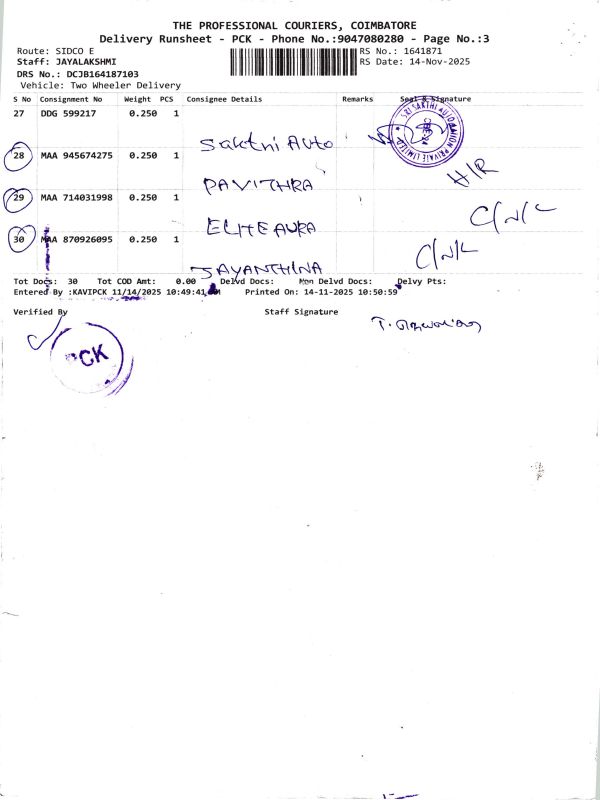 THE PROFESSIONAL COURIERS, COIMBATORE
Delivery Runsheet - PCK - Phone No.:9047080280 - Page No.:3
Route: SIDCO E RS No.: 1641871
Staff: JAYALAKSHMI RS Date: 14-Nov-2025
DRS No.: DCJB164187103
Vehicle: Two Wheeler Delivery
S No Consignment No Weight PCS Consignee Details Remarks Seal & Signature
27 DDG 599217 0.250 1
Sakthi Auto
28 MAA 945674275 0.250 1
PAVITHRA H/R
29 MAA 714031998 0.250 1
ELITE AURA C/N/L
30 MAA 870926095 0.250 1
JAYANTHINA C/N/L
Tot Docs: 30 Tot COD Amt: 0.00 Delvd Docs: Non Delvd Docs: Delvy Pts:
Entered By :KAVIPCK 11/14/2025 10:49:41 Printed On: 14-11-2025 10:50:59
Verified By Staff Signature
PCK